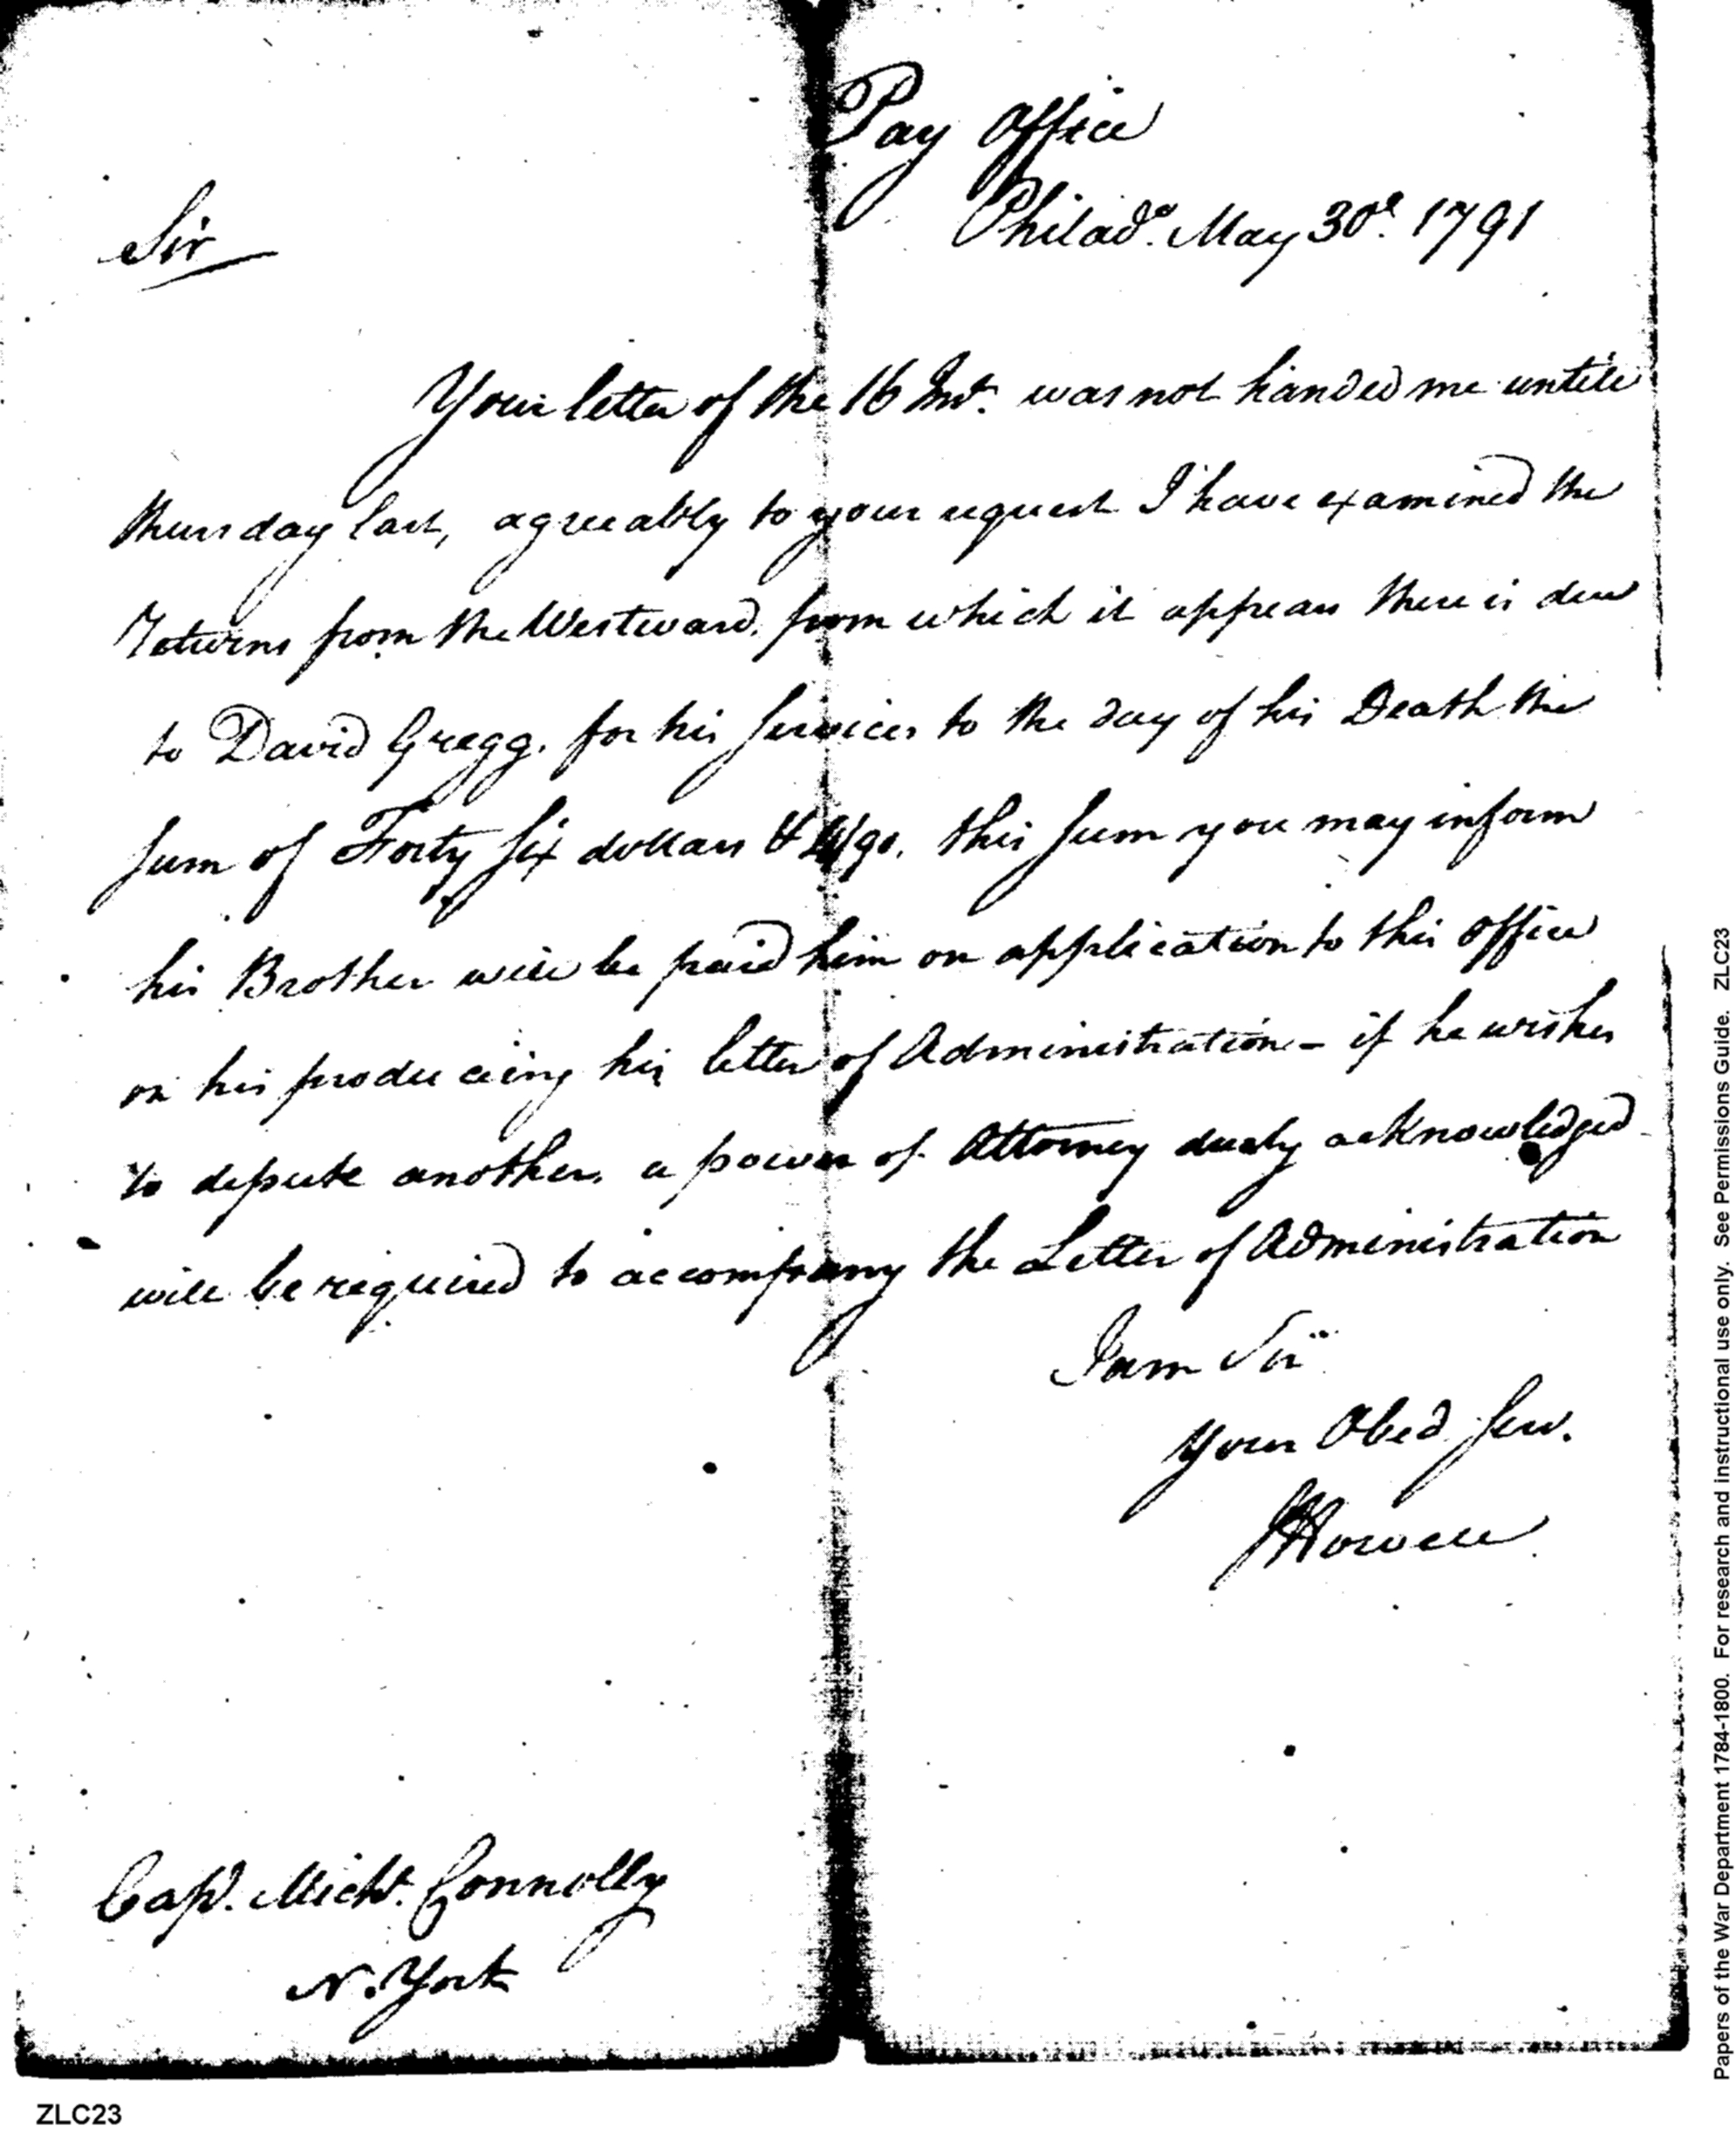 Pay Office
Philada. May 30d. 1791
Sir
Your letter of the 16 Inst. was not handed me untill
thursday last, agreeably to your request I have examined the
returns from the Westward, from which it appears there is due
to David Gregg. for his Services to the day of his Death the
Sum of Forty Six dollars & /90. this Sum you may inform
his Brother will be paid him on application to this office
on his produceing his letter of Administration - if he wishes
to depute another, a power of Attorney duely acknowledged
will be required to accompany the Letter of Administration
I am Sir
Your Obed Serv.
JHowell
Capt. Michl. Connolly
N. York
ZLC23
Papers of the War Department 1784-1800. For research and instructional use only. See Permissions Guide. ZLC23